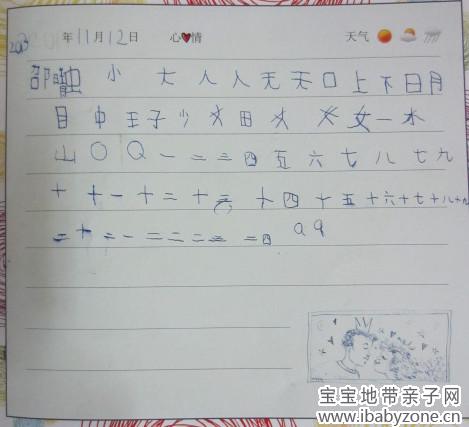 年11月12日 心情 天气
邵 小 大 人 人 无 天 口 上 下 日 月
目 中 王 子 少 田 女 一 水
山 O Q 一 二 三 四 五 六 七 八 七 九
十 十一 十二 十三 十四 十五 十六 十七 十八 十九
二十 二一 二二 二三 二四 a q
宝宝地带亲子网
www.ibabyzone.cn